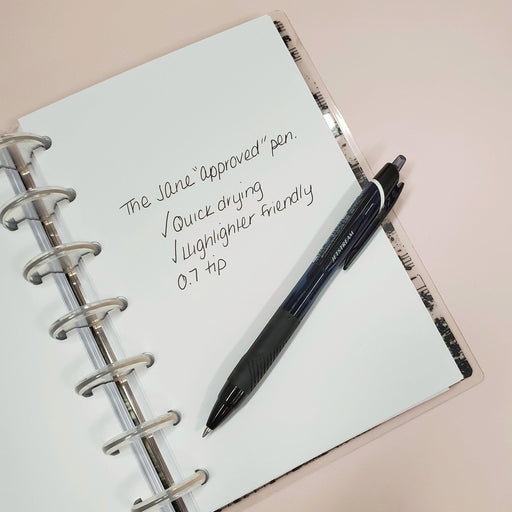 The Jane "approved" pen.
√ Quick drying
√ Highlighter friendly
0.7 tip
JETSTREAM